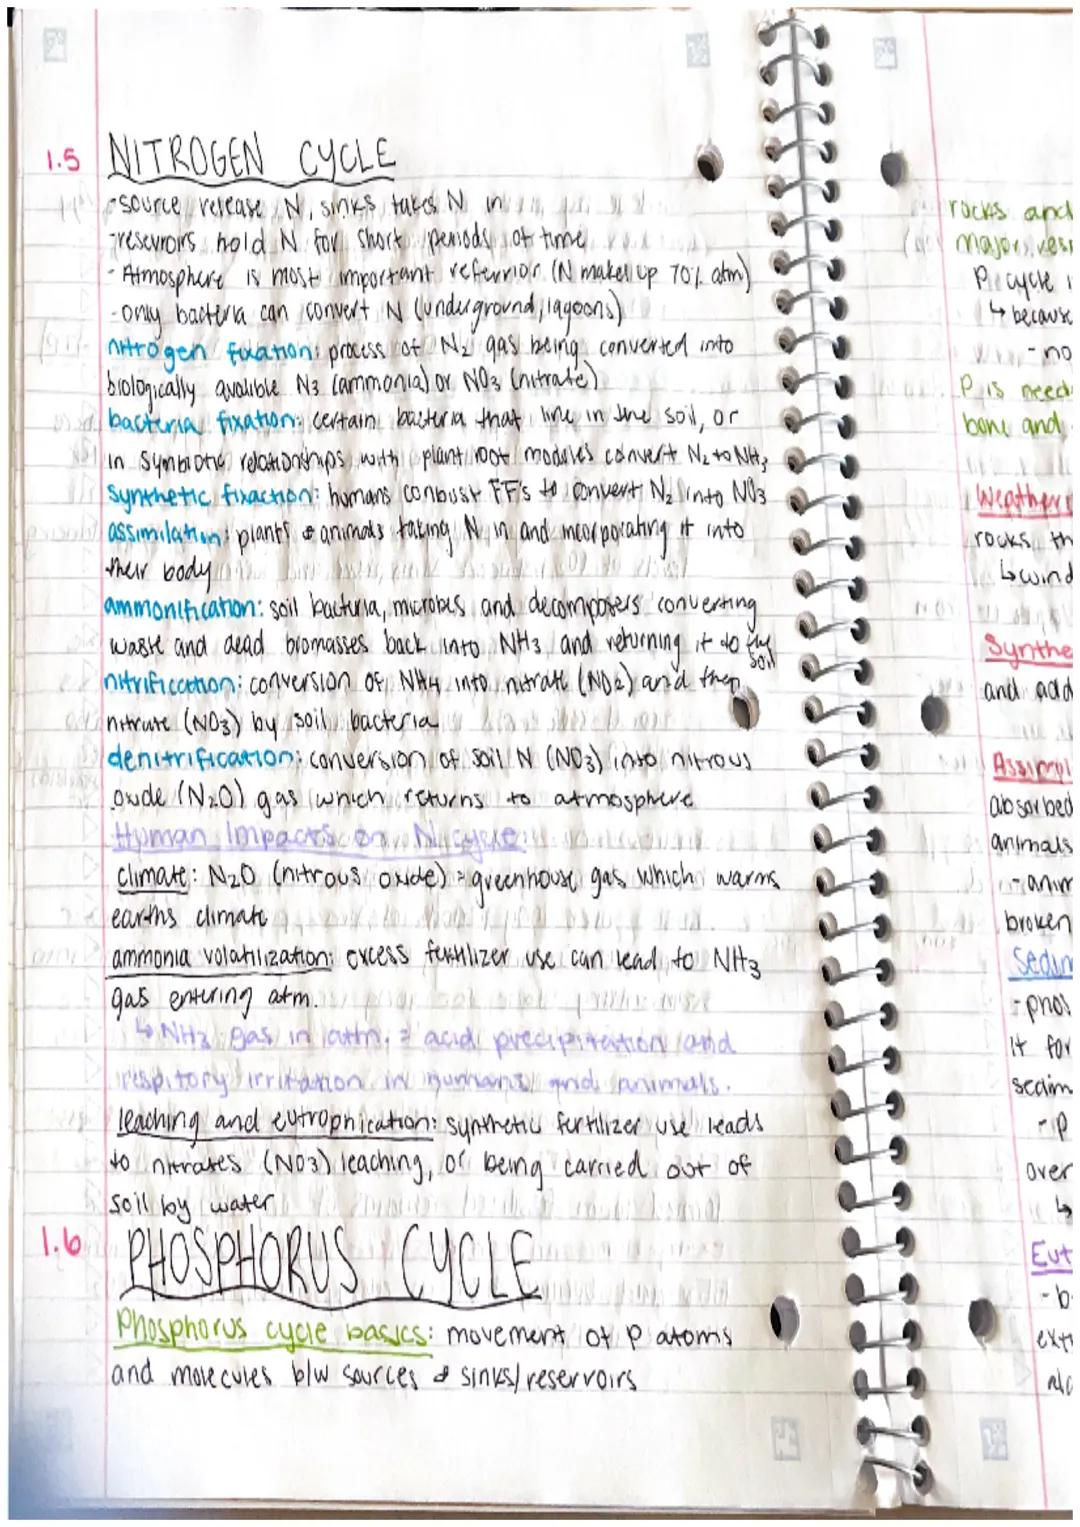 1.5 NITROGEN CYCLE
-source release N, sinks takes N in
-resevroirs hold N for short periods of time
- Atmosphere is most important referrior (N makes up 70% atm)
-only bacteria can convert N (underground, lagoons)
nitrogen fixation: process of N2 gas being converted into
biologically avalible N3 (ammonia) or NO3 (nitrate)
bacteria fixation: certain bacteria that live in the soil, or
in symbiotic relationships with plant root modules convert N2 to NH3
synthetic fixaction: humans conbust FF's to convert N2 into NO3
assimilation: plants & animals taking N in and incorporating it into
their body
ammonification: soil bacteria, microbes and decomposers converting
waste and dead biomasses back into NH3 and returning it to the
soil
nitrification: conversion of NH4 into nitrate (NO2) and then
nitrate (NO3) by soil bacteria
denitrification: conversion of soil N (NO3) into nitrous
oxide (N2O) gas which returns to atmosphere
Human Impacts on N cycle:
climate: N2O (nitrous oxide) = greenhouse gas which warms
earths climate
ammonia volatilization: excess fertilizer use can lead to NH3
gas entering atm.
↳ NH3 gas in atm. = acid precipitation and
respitory irritation in humans and animals.
leaching and eutrophication: synthetic fertilizer use leads
to nitrates (NO3) leaching, or being carried out of
soil by water
1.6 PHOSPHORUS CYCLE
Phosphorus cycle basics: movement of P atoms
and molecules b/w sources & sinks/reservoirs
rocks and
major
P cycle
↳ because
- no
P is need
bone and
rocks th
↳ wind
Synthe
and add
absorbed
animals
- anim
broken
Sedim
- phos
it for
sedim
- P
over
↳
Eut